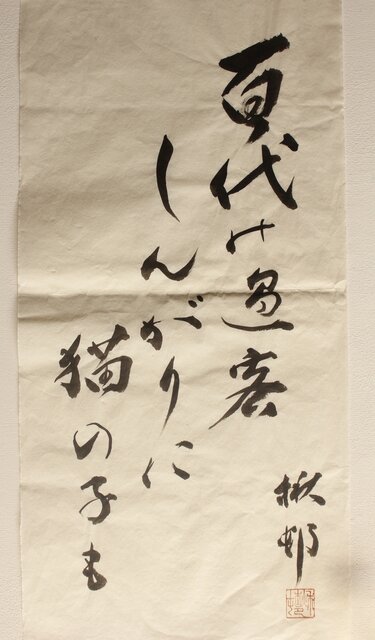 百代の過客
しんがりに
猫の子も
楸邨